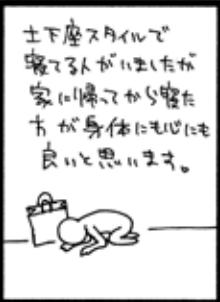 土下座スタイルで
寝てる人がいましたが
家に帰ってから寝た
方が身体にも心にも
良いと思います。